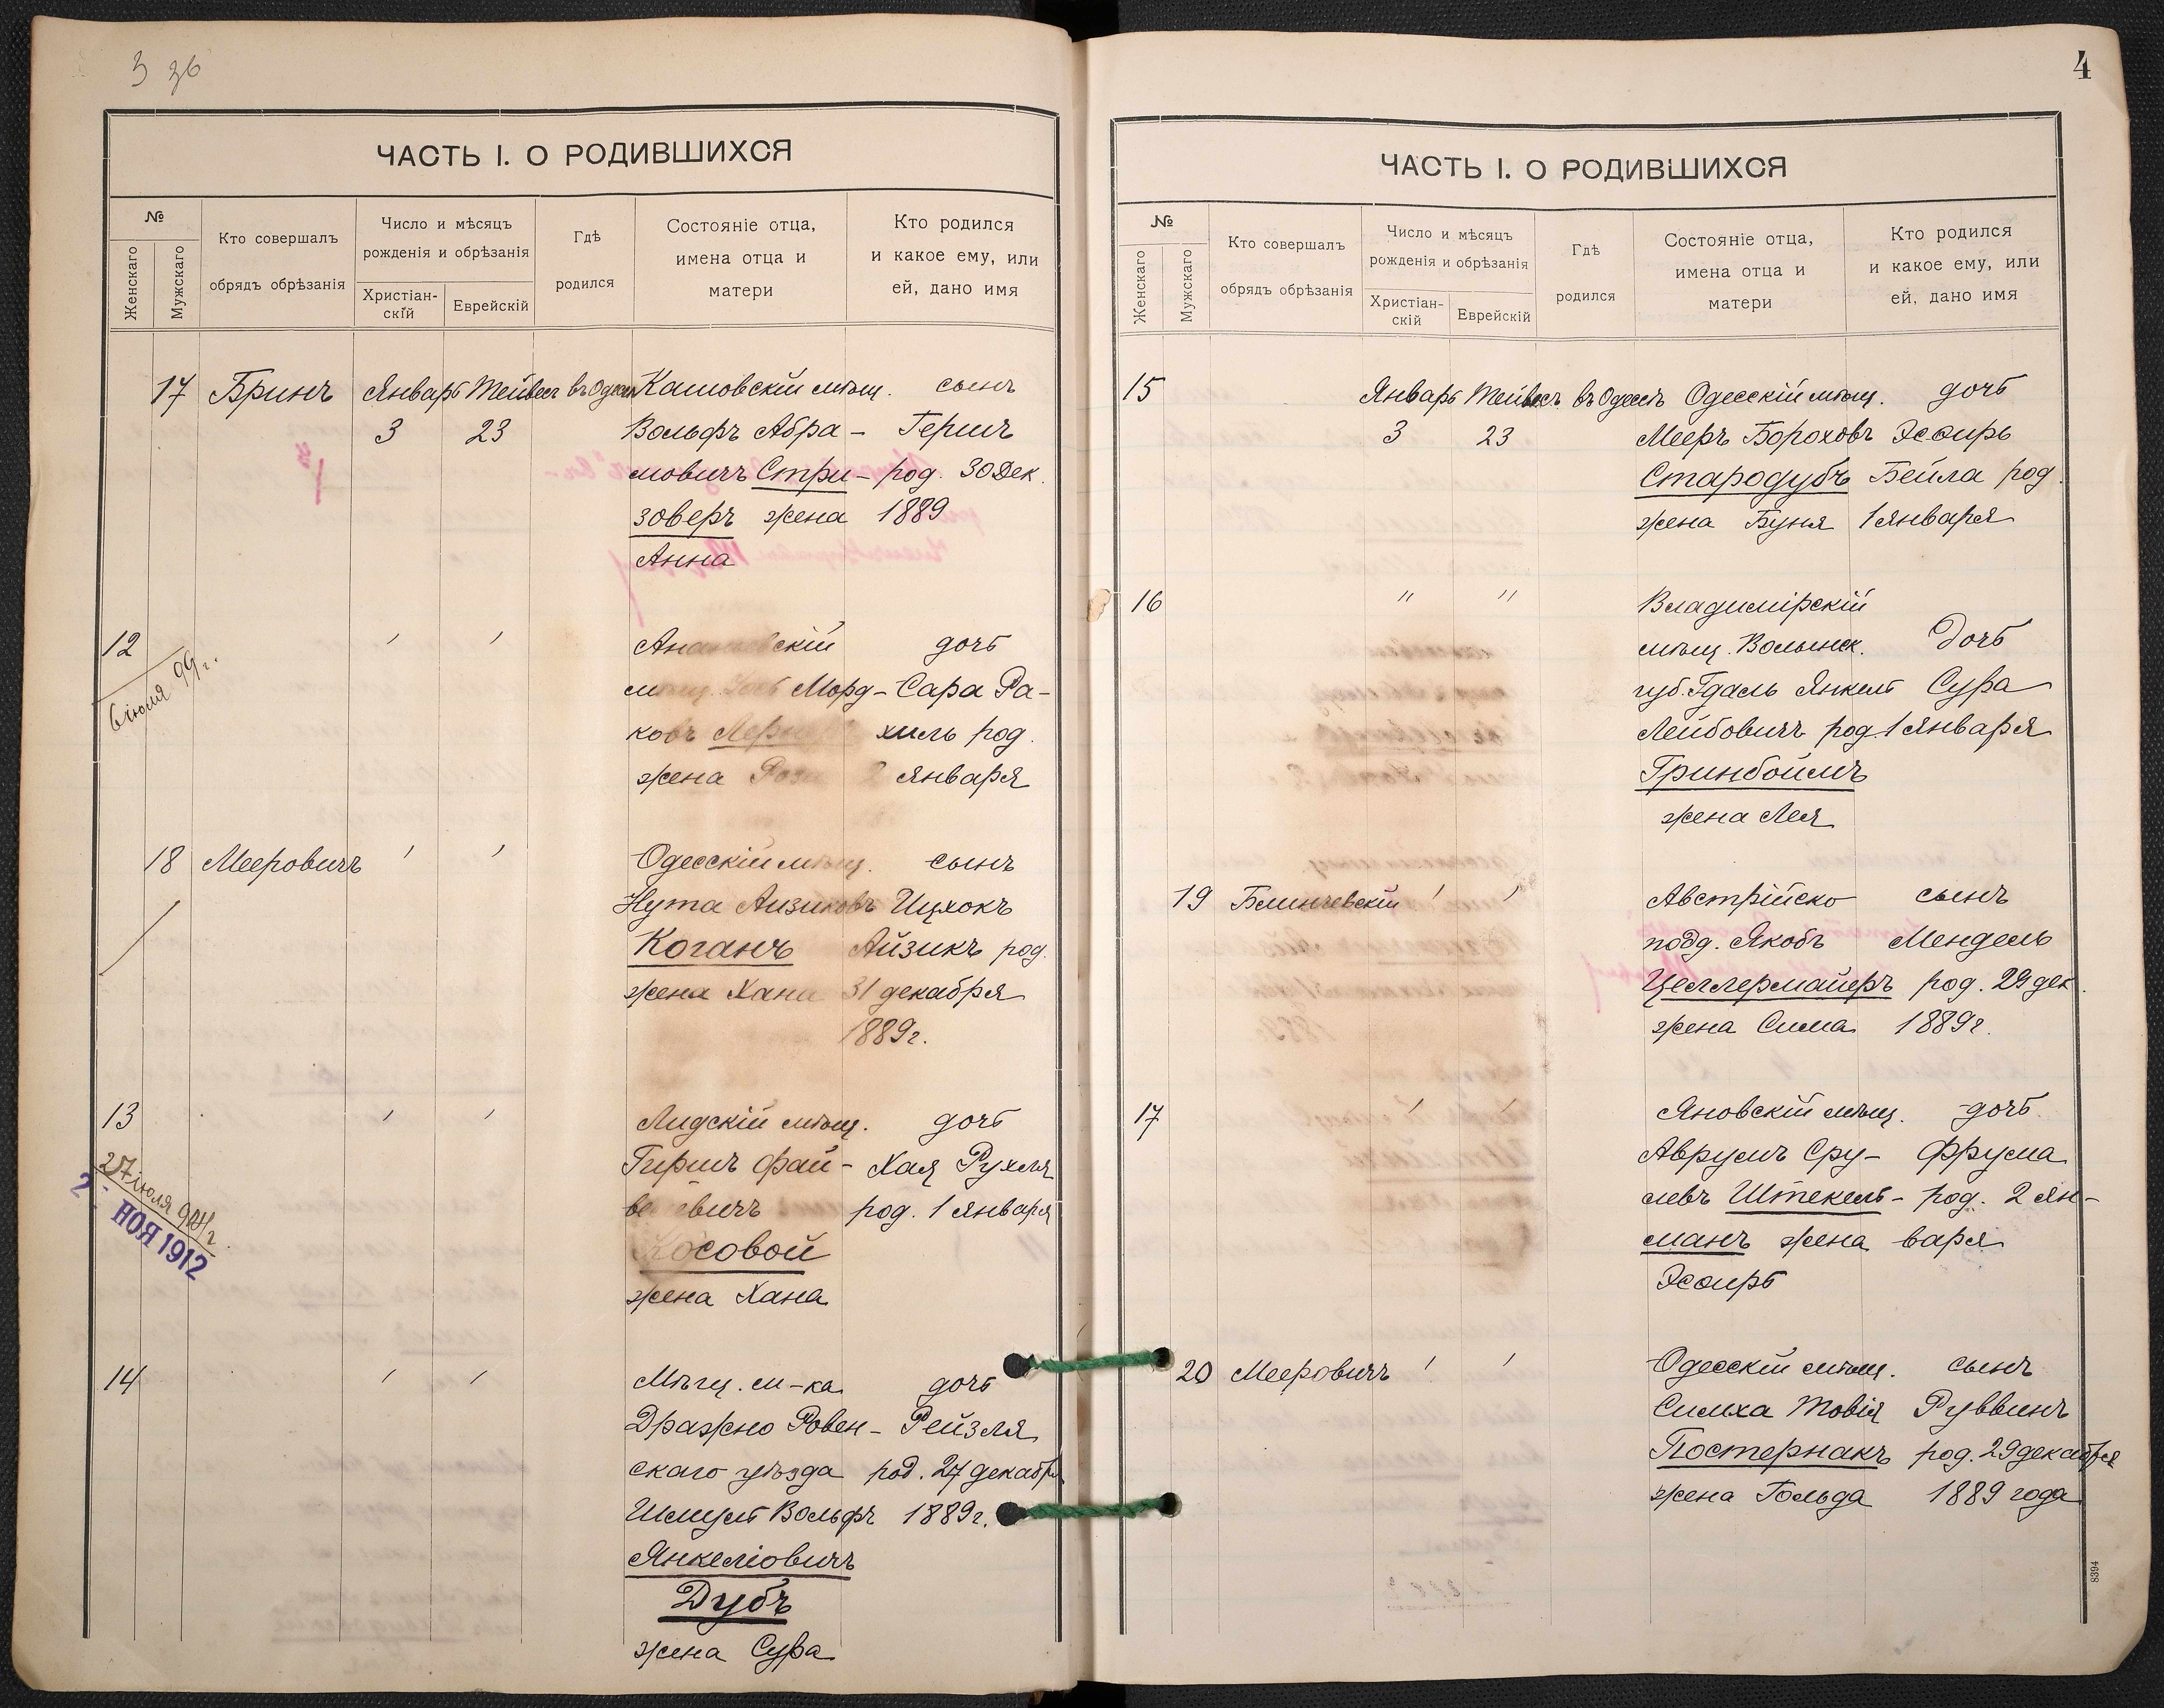 3 зб
ЧАСТЬ I. О РОДИВШИХСЯ
№
Женскаго
Мужскаго
Кто совершалъ
обрядъ обрѣзанія
Число и мѣсяцъ
рожденія и обрѣзанія
Христіан-
скій
Еврейскій
Гдѣ
родился
Состояніе отца,
имена отца и
матери
Кто родился
и какое ему, или
ей, дано имя
17 Бринъ Январь Тейвес въ Одессѣ Кашовскій мѣщ. сынъ
3 23 Вольфъ Абра- Гершъ
мовичъ Стри- род. 30 Дек.
зоверъ жена 1889
Анна
12 ′ ′ скій дочь
6 іюля 99г.
Морд- Сара Ра-
ковъ хиль род.
жена 2 января
18 Мееровичъ ′ ′ Одесскій мѣщ. сынъ
Нута Аизиковъ Ицхокъ
Коганъ Айзикъ род.
жена Хана 31 декабря
1889г.
13 ′ ′ Лидскій мѣщ. дочь
27 іюля
2- НОЯ 1912
Гиршъ Фай- Хая Рухля
евичъ род. 1 января
Косовой
жена Хана
14 ′ ′ Мѣщ. м-ка дочь
Дражно Ровен- Рейзля
скаго уѣзда род. 27 декабря
Шмуль Вольфъ 1889г.
Янкеліовичъ
Дубъ
жена Сура
4
ЧАСТЬ I. О РОДИВШИХСЯ
№
Женскаго
Мужскаго
Кто совершалъ
обрядъ обрѣзанія
Число и мѣсяцъ
рожденія и обрѣзанія
Христіан-
скій
Еврейскій
Гдѣ
родился
Состояніе отца,
имена отца и
матери
Кто родился
и какое ему, или
ей, дано имя
15 Январь Тейвесъ въ Одессѣ Одесскій мѣщ. дочь
3 23 Мееръ Бороховъ Эсѳирь
Стародубъ Бейла род.
жена Буня 1 января
16 " " Владимірскій
мѣщ. Волынск. дочь
губ. Гдаль Янкель Сура
Лейбовичъ род. 1 января
Гринбоймъ
жена Лея
19 Блинчевскій ′ ′ Австрійско сынъ
подд. Якобъ Мендель
Целлермайеръ род. 29 дек.
жена Сима 1889г.
17 ′ ′ Яновскій мѣщ. дочь
Аврумъ Сру- Фрума
левъ Штекель- род. 2 ян-
манъ жена варя
Эсѳирь
20 Мееровичъ ′ ′ Одесскій мѣщ. сынъ
Симха Товія Руввинъ
Постернакъ род. 29 декабря
жена Гольда 1889 года
8394